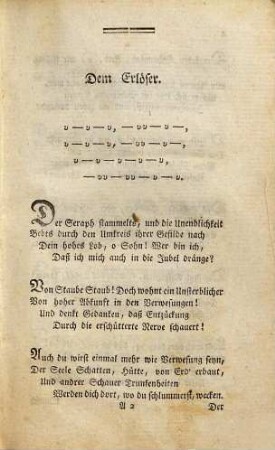 Dem Erlöser.
υ—υ—υ, —υυ—υ—,
υ—υ—υ, —υυ—υ—,
υ—υ—υ—υ—υ,
—υυ—υυ—υ—υ.
Der Seraph stammelts, und die Unendlichkeit
Bebts durch den Umkreis ihrer Gefilde nach
Dein hohes Lob, o Sohn! Wer bin ich,
Daß ich mich auch in die Jubel dränge?
Von Staube Staub! Doch wohnt ein Unsterblicher
Von hoher Abkunft in den Verwesungen!
Und denkt Gedanken, daß Entzückung
Durch die erschütterte Nerve schauert!
Auch du wirst einmal mehr wie Verwesung seyn,
Der Seele Schatten, Hütte, von Erd' erbaut,
Und andrer Schauer Trunkenheiten
Werden dich dort, wo du schlummerst, wecken.
A 2 Der